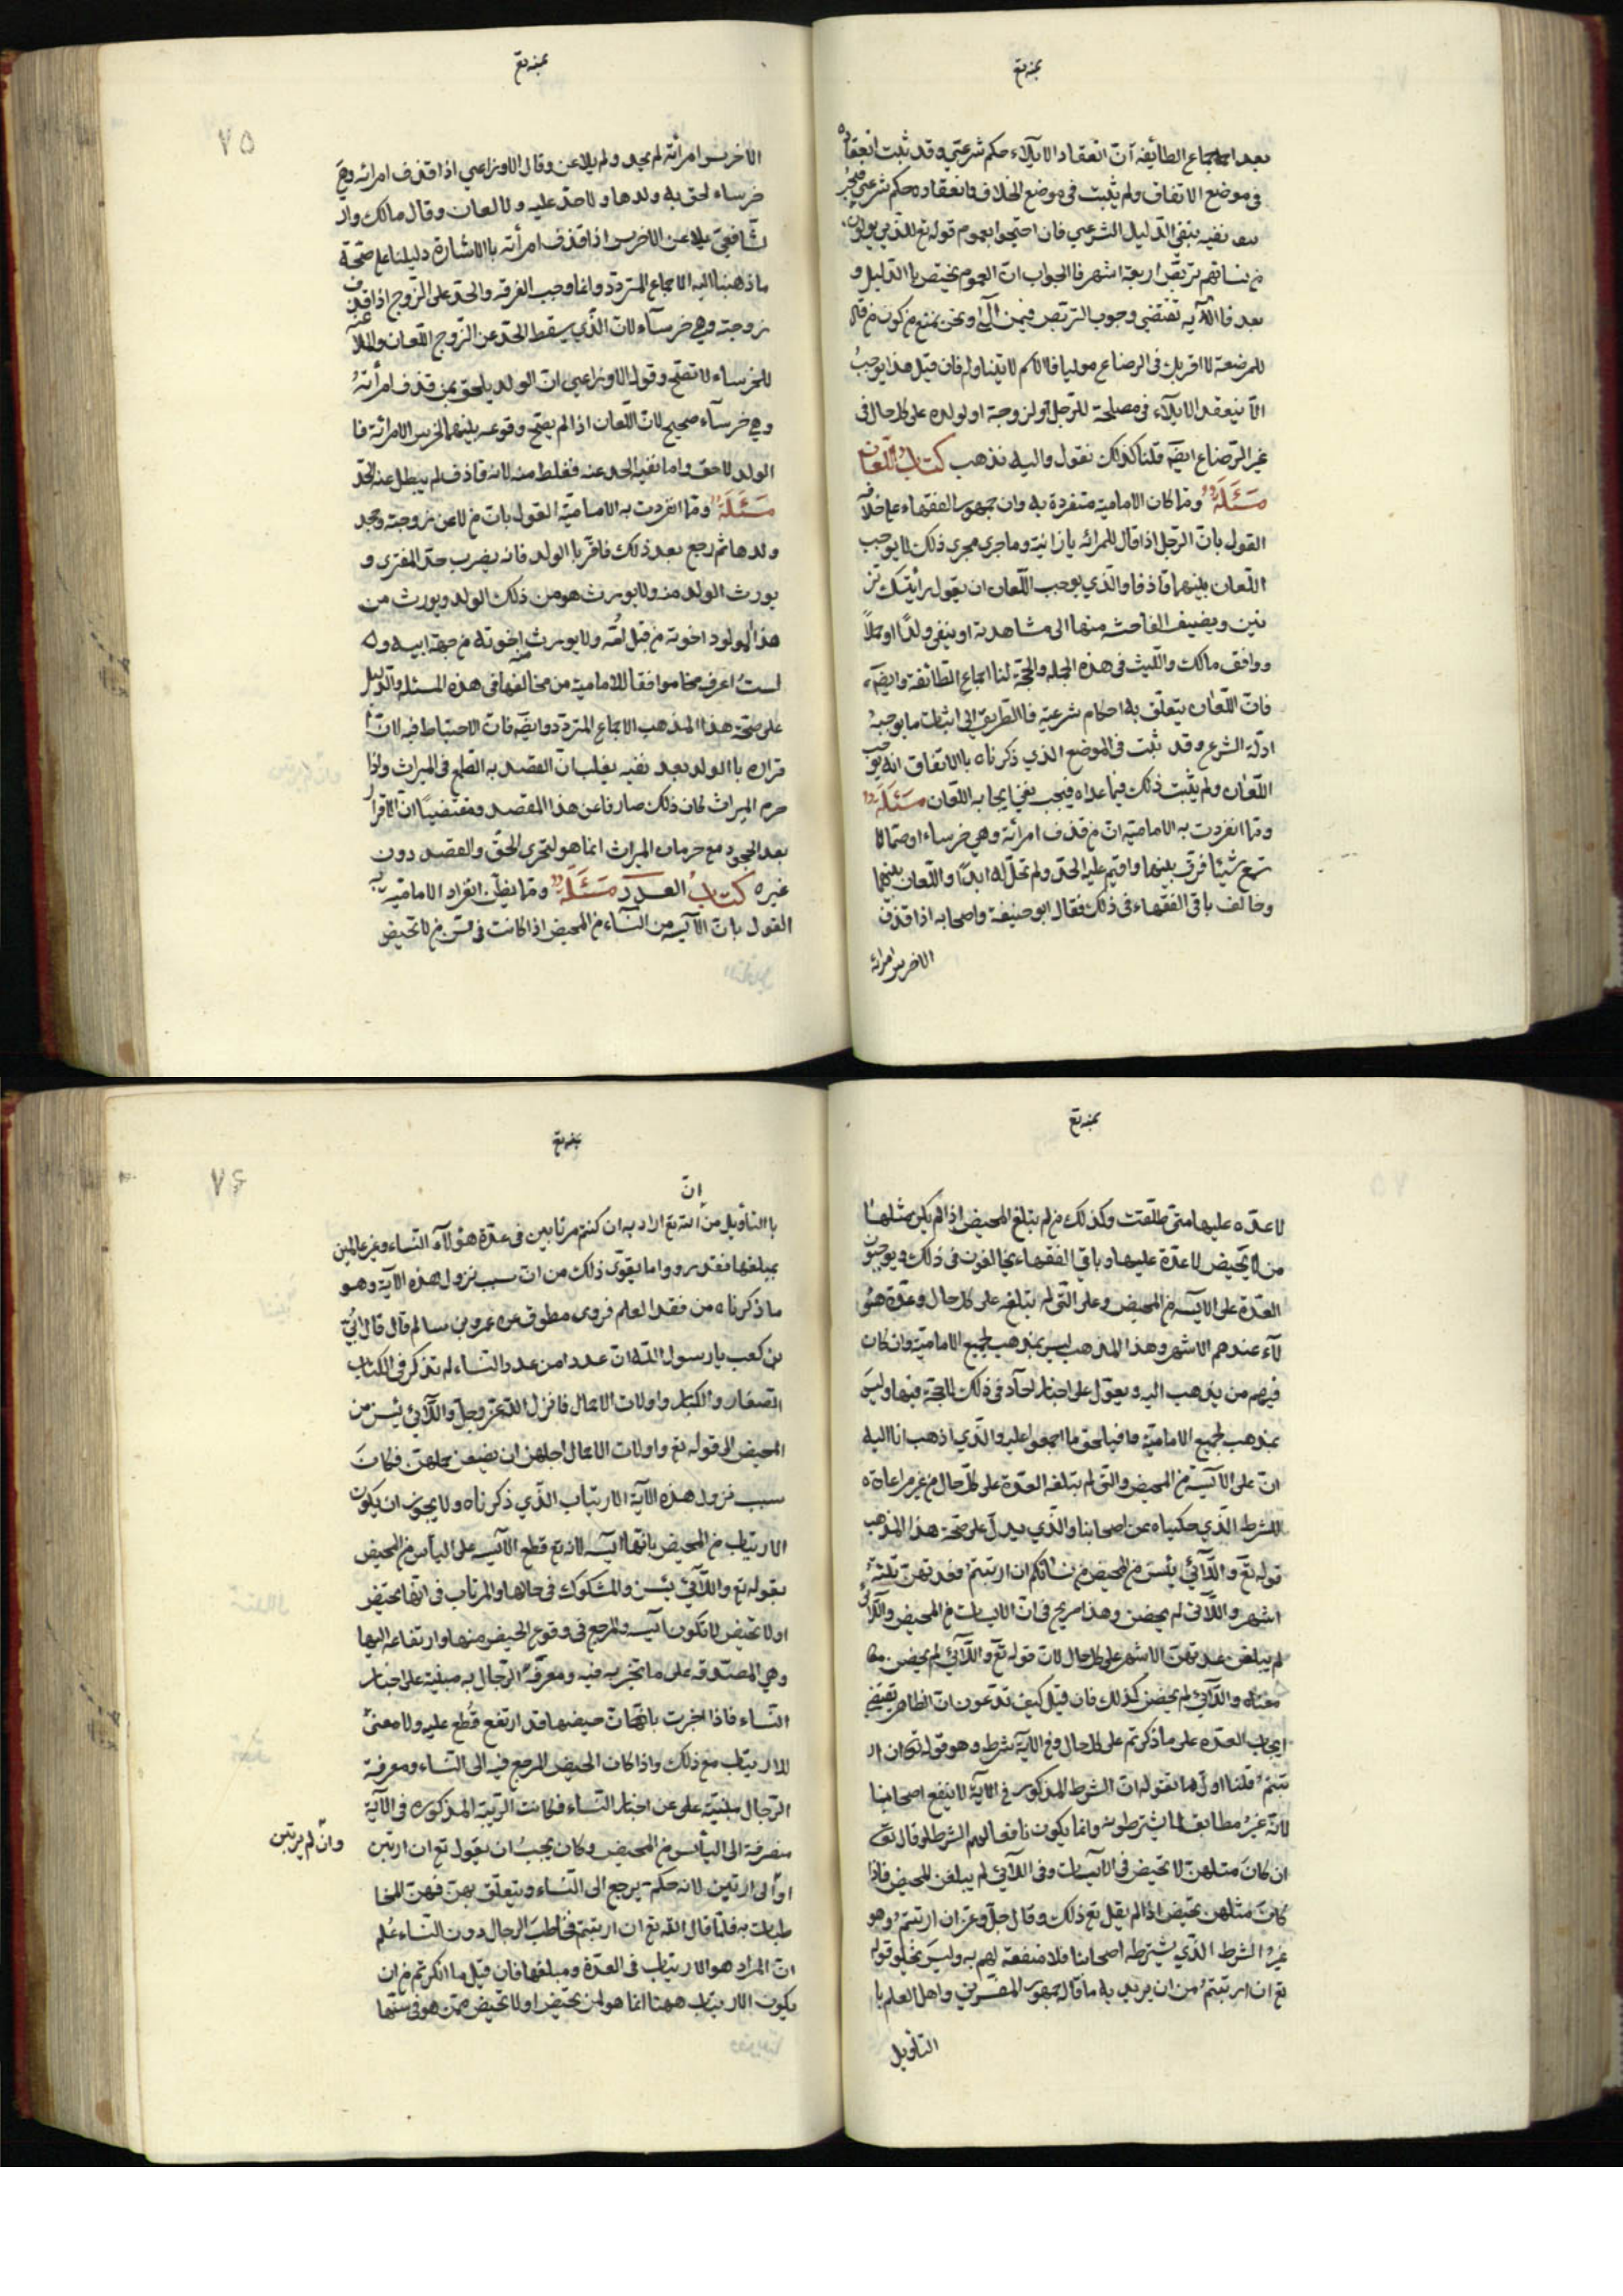 بعد اجماع الطائفة انّ انعقاد الايلاء حكم شرعي وقد ثبت انعقاده
في موضع الاتفاق ولم يثبت في موضع الخلاف وانعقاده حكم شرعي فيجب
نفيه بنفي الدليل الشرعي فان احتجوا بعموم قوله تع للذين يولون
من نسائهم تربص اربعة اشهر فالجواب انّ العموم يختص بالدليل و
بعد فالآية تقتضي وجوب التربص فيمن آلى ونحن نمنع من كون من قال
للمرضعة لا اقربك في الرضاع موليا فالاسم لا يتناوله فان قيل هذا يوجب
الّا ينعقد الايلاء في مصلحة للرجل او لزوجة او لولده على كل حال في
غير الرضاع ايضا قلنا كذلك نقول واليه نذهب كتاب اللعان
مسئلة ومما كان الامامية متفردة به وان جمهور الفقهاء على خلافه
القول بانّ الرجل اذا قال للمرائه يا زانية وما جرى مجرى ذلك لا يوجب
اللعان بينهما قاذفا والذي يوجب اللعان ان يقول رأيتك تز
نين ويضيف الفاحشة منها الى مشاهدته او ينفي ولدا او حملاً
ووافق مالك والليث في هذه الجملة والحجة لنا اجماع الطائفة وايضا
فانّ اللعان يتعلق به احكام شرعية فالطريق الى اثبات ما يوجبه
ادلة الشرع وقد ثبت في الموضع الذي ذكرناه بالاتفاق انه يوجب
اللعان ولم يثبت ذلك فيما عداه فيجب نفي ايجابه اللعان مسئلة
ومما انفردت به الامامية انّ من قذف امرائة وهي خرساء او صماء لا
تسمع شيئا فرق بينهما واقيم عليه الحد ولم تحل له ابدا واللعان بينهما
وخالف باقي الفقهاء في ذلك فقال ابو حنيفة واصحابه اذا قذف
الاخرس امرائه
٧٥
الاخرس امرأته لم يحد ولم يلاعن وقال الاوزاعي اذا قذف امرائه وهي
خرساء لحق به ولدها ولا حد عليه ولا لعان وقال مالك وال
شافعي يلاعن الاخرس اذا قذف امرأته بالاشارة دليلنا على صحة
ما ذهبنا اليه الاجماع المتردد وانما وجب الفرقه والحد على الزوج اذا قذف
زوجته وهي خرساء لانّ الذي يسقط الحد عن الزوج اللعان والملاعنة
للخرساء لا تصح وقول الاوزاعي انّ الولد يلحق بمن قذف امرأته
وهي خرساء صحيح لانّ اللعان اذا لم يصح وقوعه بينهما لخرس الامرائة فا
الولد لاحق واما نفيه الحد عنه فغلط منه لانه قاذف لم يبطل عنه الحد
مسئلة ومما انفردت به الامامية القول بانّ من لاعن زوجته وجحد
ولدها ثم رجع بعد ذلك فاقر بالولد فانه يضرب حد المفتري و
يورث الولد منه ولا يورث هو من ذلك الولد ويورث من
هذا المولود اخوته من قبل امّه ولا يورث اخوته من جهة ابيه و
لستُ اعرف موافقا للامامية من مخالفيها في هذه المسئلة والدليل
على صحة هذا المذهب الاجماع المتردد وايضا فانّ الاحتياط فيه لانّ ا
قراره بالولد بعد نفيه يغلب ان القصد به الطمع في الميراث واذا
حرم الميراث كان ذلك صارفا عن هذا المقصد ومقتضيا انّ الاقرار
بعد الجحود مع حرمان الميراث انما هو لتحري الحق والقصد دون
غيره كتاب العدد مسئلة ومما يظن انفراد الامامية به
القول بانّ الآيسه من النساء من المحيض اذا كانت في سن من لا تحيض
لا عدة عليها متى طلقت وكذلك من لم تبلغ المحيض اذا لم يكن مثلها
من لا تحيض لا عدة عليها وباقي الفقهاء يخالفون في ذلك ويوجبون
العدة على الآيسه من المحيض وعلى التي لم تبلغه على كل حال وعدة هؤ
لآء عندهم الاشهر وهذا المذهب ليس بمذهب لجميع الامامية وان كان
فيهم من يذهب اليه ويعول على اخبار احآد في ذلك لا حجة فيها وليس
بمذهب لجميع الامامية فيلحق بما اجمعوا عليه والذي اذهب انا اليه
انّ على الآيسة من المحيض والتي لم تبلغه العدة على كل حال من غير مراعاة
للشرط الذي حكيناه عن اصحابنا والذي يدل على صحة هذا المذهب
قوله تع واللآئي يئسن من المحيض من نسائكم ان ارتبتم فعدتهن ثلثة
اشهر واللآئي لم يحضن وهذا صريح في انّ الآيسات من المحيض واللآئي
لم يبلغن عدتهن الاشهر على كل حال لانّ قوله تع واللآئي لم يحضن
معناه واللآئي لم يحضن كذلك فان قيل كيف تدعون انّ الظاهر يقتضي
ايجاب العدة على ما ذكرتم على كل حال وفي الآية شرط وهو قوله تع ان ار
تبتم قلنا اول ما نقوله انّ الشرط المذكور في الآية لا ينفع اصحابنا
لانّه غير مطابق لما يشترطونه وانما يكون نافعا لهم الشرط لو قال تع
ان كان مثلهن لا تحيض في الآيسات وفي اللآئي لم يبلغن المحيض فاذا
كانت مثلهن تحيض اذا لم يقل تع ذلك وقال جل وعز ان ارتبتم وهو
غير الشرط الذي يشترطه اصحابنا فلا منفعة لهم به وليس يخلو قوله
تع ان ارتبتم من ان يريد به ما قاله جمهور المفسرين واهل العلم با
التأويل
٧٦
بالتأويل من انّ الله تع اراد به ان كنتم مرتابين في عدة هؤلاء النساء وغير عالمين
بمبلغها فقد رووا ما يقوي ذلك من انّ سبب نزول هذه الآية وهو
ما ذكرناه من فقد العلم فروى مطرف عن عمرو بن سالم قال قال ابيّ
بن كعب يا رسول الله انّ عددا من عدد النساء لم تذكر في الكتاب
الصغار والكبار واولات الاحمال فانزل الله عز وجل واللآئي يئسن من
المحيض الى قوله تع واولات الاحمال اجلهن ان يضعن حملهن فكان
سبب نزول هذه الآية الارتياب الذي ذكرناه ولا يجوز ان يكون
الارتياب من المحيض بانها آيسه لانه تع قطع الآيسه على اليأس من المحيض
بقوله تع واللآئي يئسن والمشكوك في حالها والمرتاب في انها تحيض
او لا تحيض لا تكون آيسه والمرجع في وقوع الحيض منها وارتفاعه اليها
وهي المصدقه على ما تخبر به فيه ومعرفة الرجال به مبنية على اخبار
النساء فاذا اخبرت بانّ حيضها قد ارتفع قُطع عليه ولا معنى
للارتياب مع ذلك واذا كان الحيض المرجع فيه الى النساء ومعرفة
الرجال مبنية على اخبار النساء فكانت الريبة المذكوره في الآية
منصرفة الى اليأس من المحيض وكان يجب ان يقول تع ان ارتبن
وان لم يرتبن
او ان ارتبن لانه حكم يرجع الى النساء ويتعلق بهن فهن المخا
طبات به فلما قال الله تع ان ارتبتم فخاطب الرجال دون النساء علم
انّ المراد هو الارتياب في العدة ومبلغها فان قيل ما انكرتم من ان
يكون الارتياب ههنا انما هو لمن تحيض او لا تحيض ممن هو في سنها